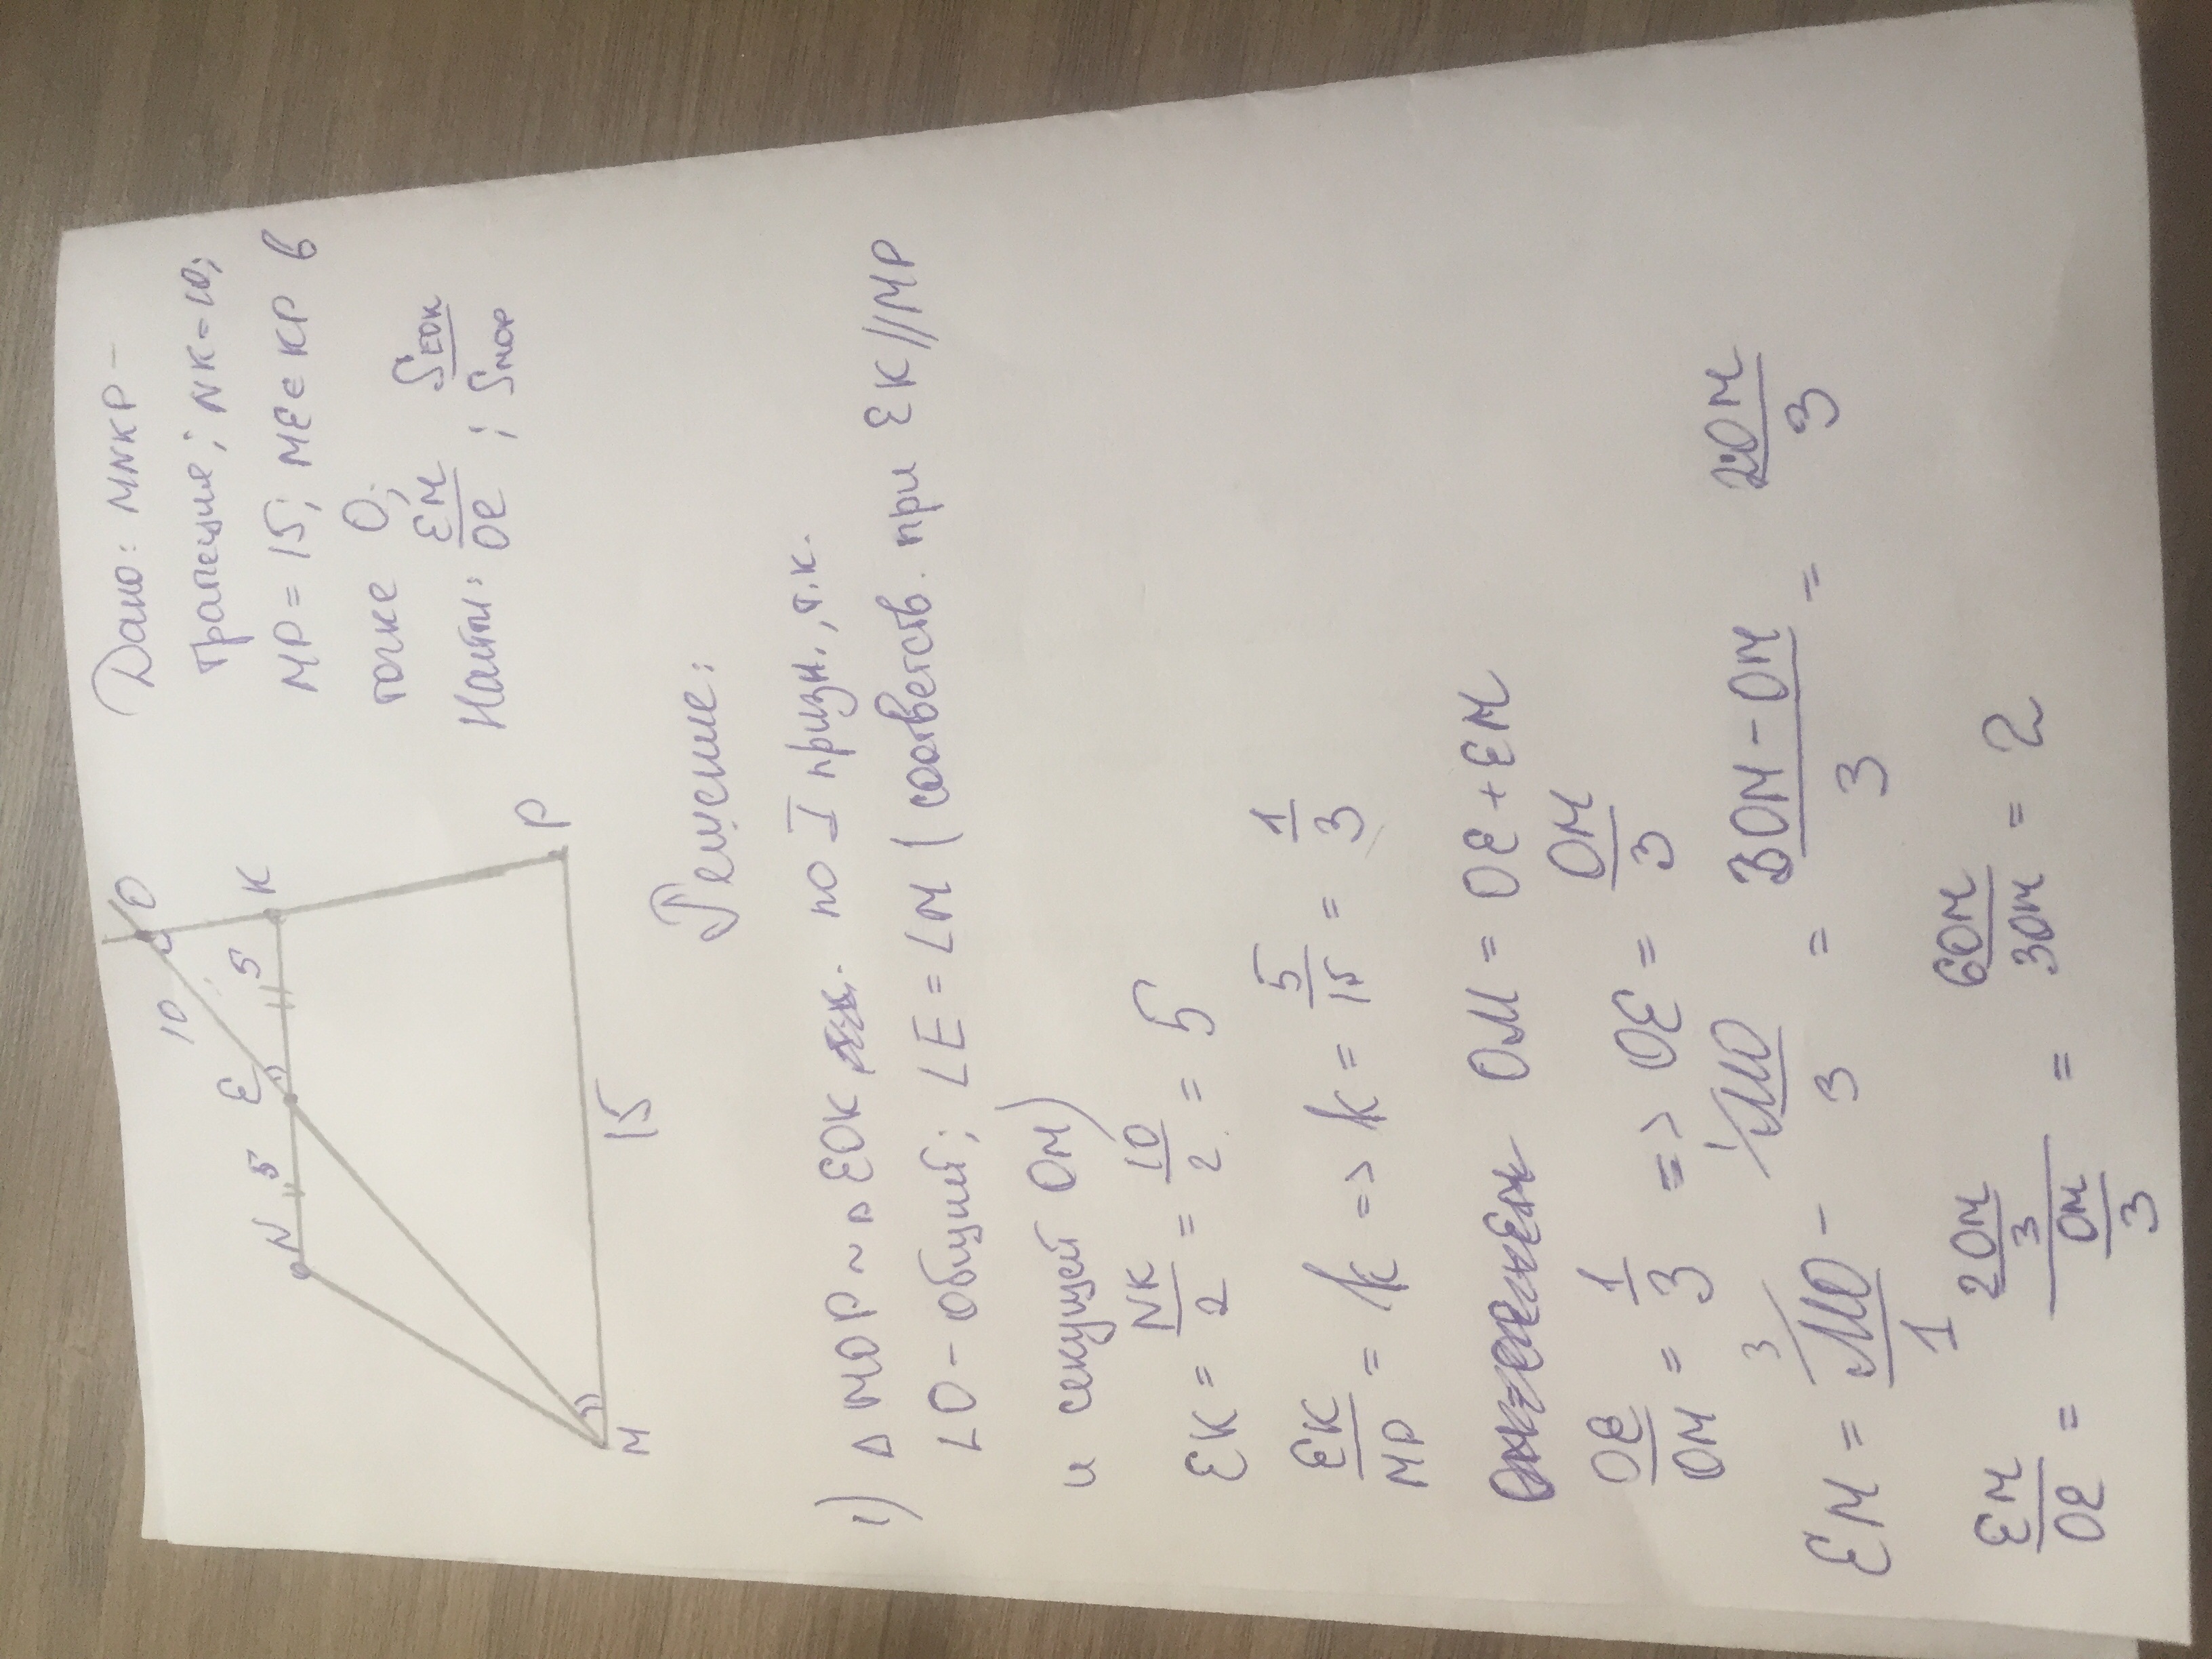 Дано: MNKP -
трапеция; NK=10;
MP=15; ME∈KP в
точке O;
Найти: EM/OE ; S EOK/S MOP
O
10
N 5 E 5 K
M 15 P
Решение:
1) △MOP ~ △EOK по I призн., т.к.
∠O - общий; ∠E = ∠M (соответств. при EK//MP
и секущей OM)
EK = NK/2 = 10/2 = 5
EK/MP = k => k = 5/15 = 1/3
OM = OE + EM
OE/OM = 1/3 => OE = OM/3
EM = 3/ MO/1 - 1/ MO/3 = 3OM-OM/3 = 2OM/3
EM/OE = 2OM/3 / OM/3 = 6OM/3OM = 2